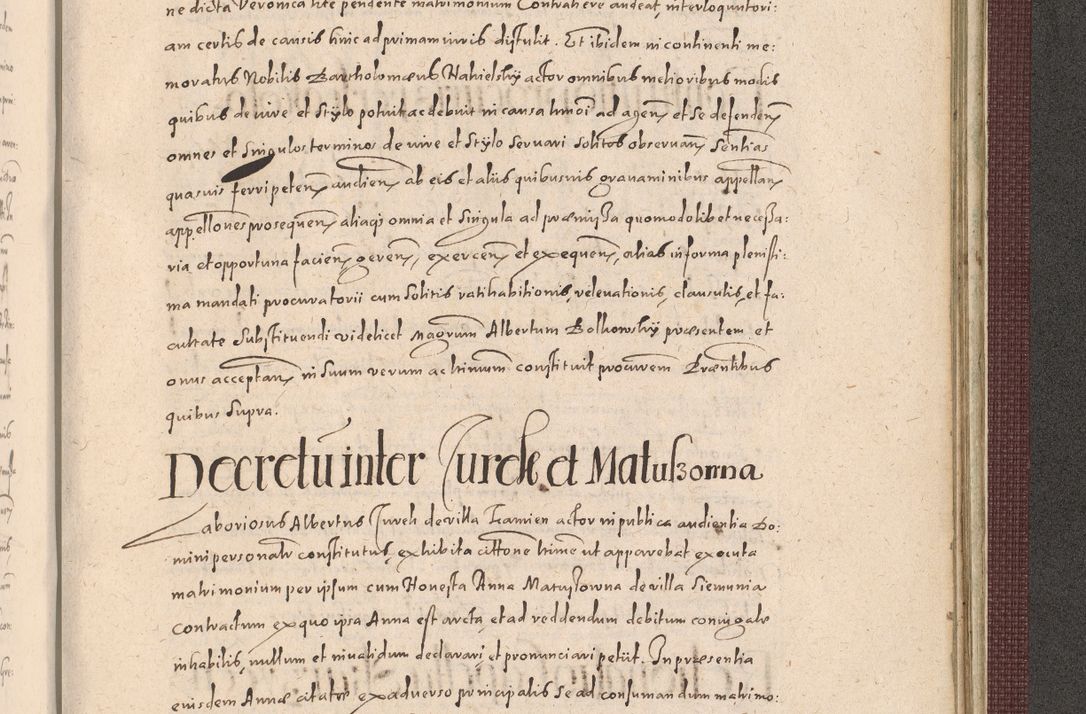 ne dicta Veronica lite pendente matrimonium Contrahere audeat, interloquutori:
am certis de causis hinc ad primam iuris distulit. Et ibidem in continenti me:
moratus Nobilis Bartholomæus Nahielsky actor omnibus melioribus modis
quibus de iure et Stylo potuit ac debuit in causa hmōi ad agen et se defenden
omnes et Singulos terminos de iure et Stylo servari Solitos observan Sentias
quasuis ferri peten audien ab eis et aliis quibusuis gravaminibus appellan
appellōnes prosequen aliaq omnia et Singula ad præmissa quomodolibet necessa:
ria et opportuna facien, geren, exercen et exequen, alias in forma plenissi:
ma mandati procuratorii cum Solitis ratihabitionis, relevationis, clausulis, et fa:
cultate Substituendi videlicet Magrum Albertum Bolkowsky præsentem et
onus acceptan in Suum verum ac ltimum constituit procurem Præntibus
quibus Supra.
Decretū inter Jurek et Matuszowna
Laboriosus Albertus Jurek de villa Kamien actor in publica audientia Do:
mini personalr constitutus, exhibita cittōne ltime ut apparebat executa
matrimonium per ipsum cum Honesta Anna Matuszowna de villa Siemunia
contractum ex quo ipsa Anna est arcta, et ad reddendum debitum coniugale
inhabilis, nullum et invalidum declarari, et pronunciari petiit. In præsentia
eiusdem Annæ citatæ ex adverso principalis se ad consumandum matrimo: